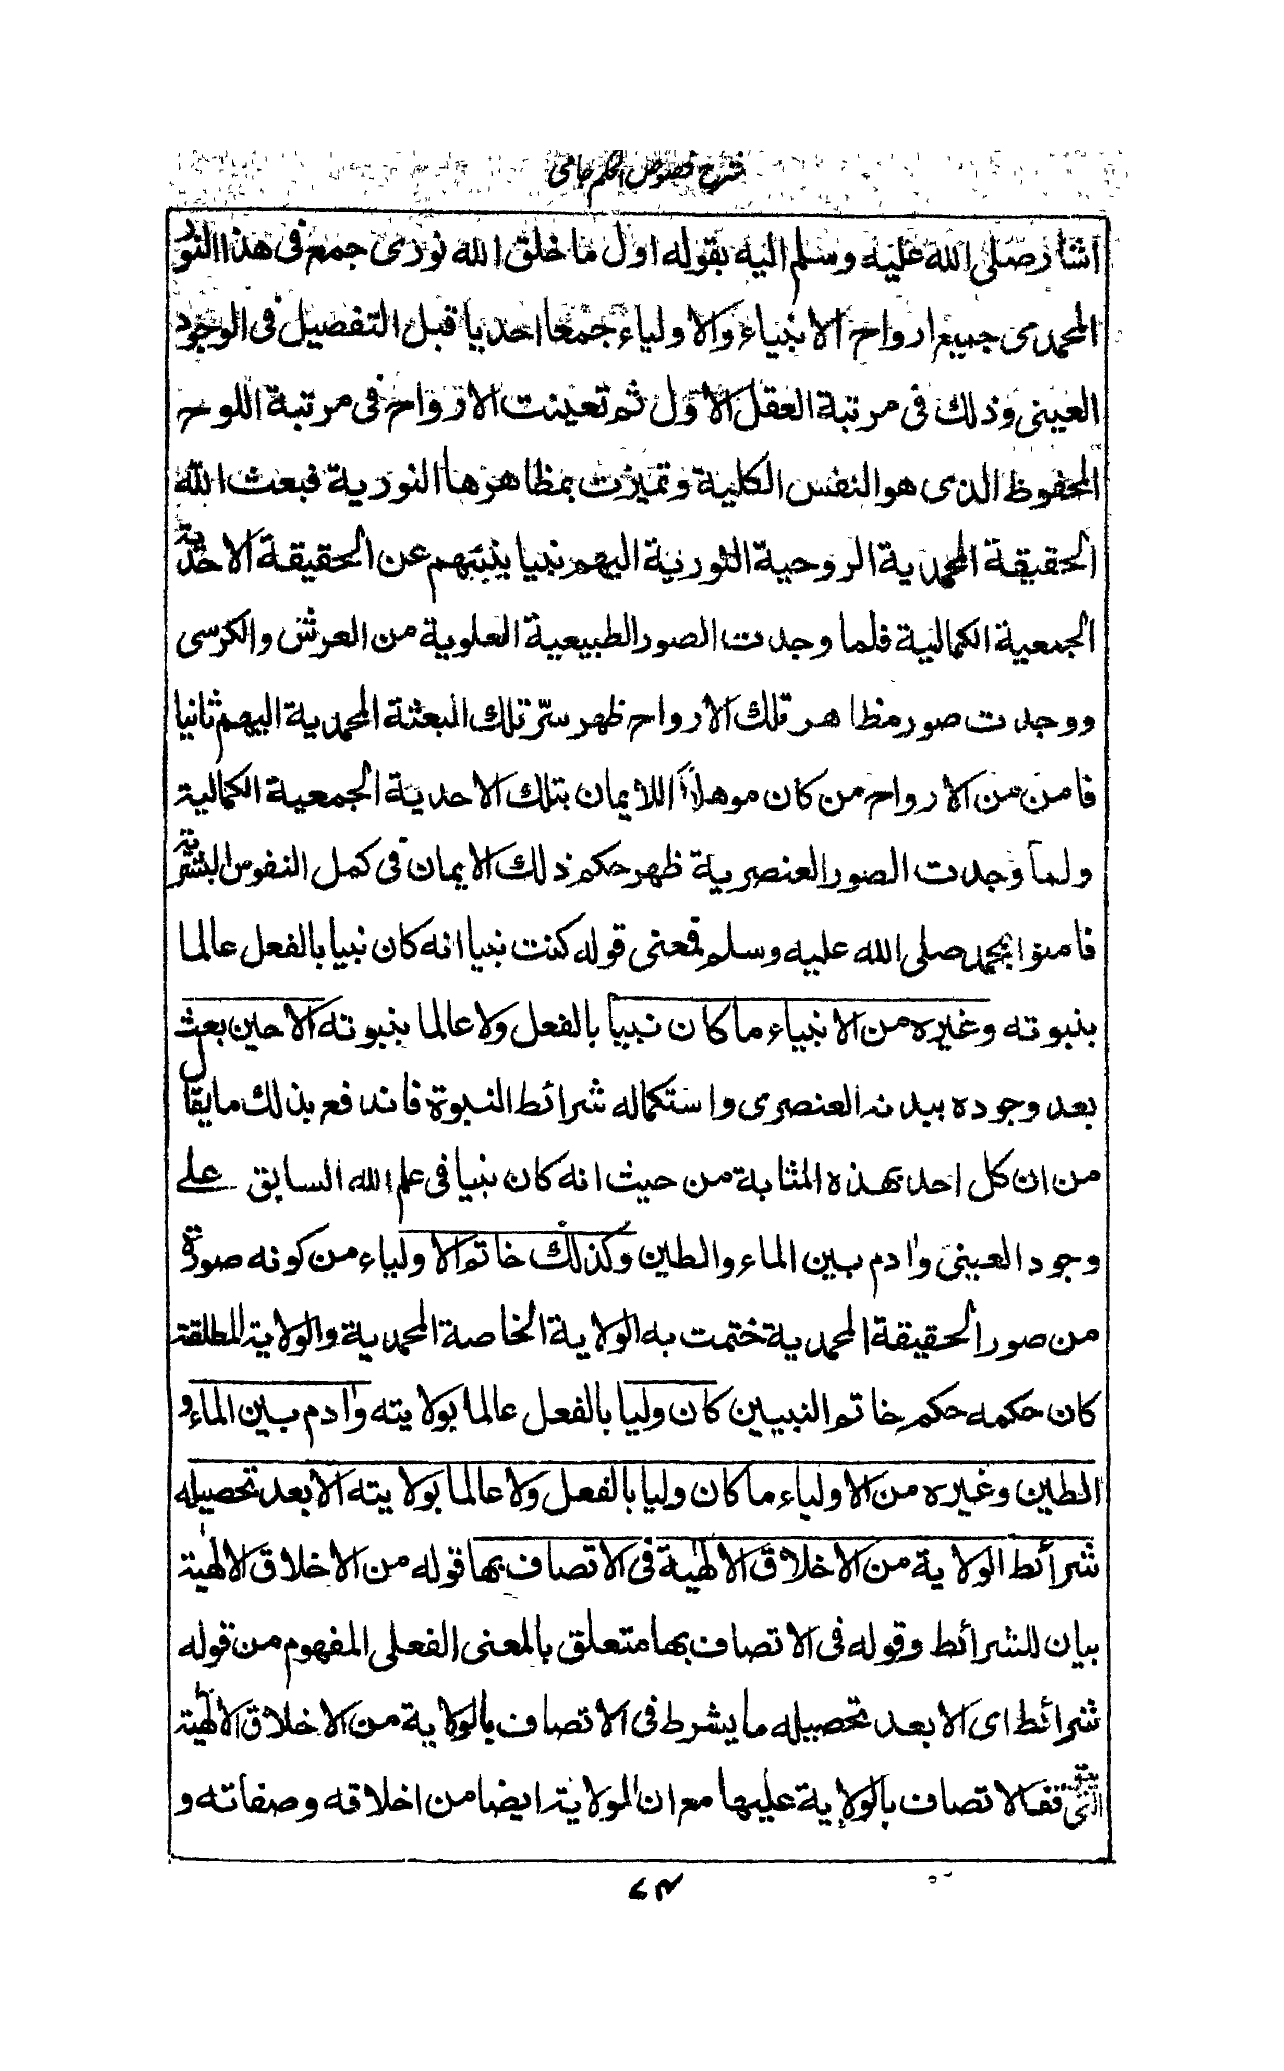 شرح فصوص الحكم جامى
اشار صلى الله عليه وسلم اليه بقوله اول ما خلق الله نورى جمع فى هذا النور
المحمدى جميع ارواح الانبياء والاولياء جمعا احديا قبل التفصيل فى الوجود
العينى وذلك فى مرتبة العقل الاول ثم تعينت الارواح فى مرتبة اللوح
المحفوظ الذى هو النفس الكلية وتميزت بمظاهرها النورية فبعث الله
الحقيقة المحمدية الروحية النورية اليهم نبيا ينبئهم عن الحقيقة الاحدية
الجمعية الكمالية فلما وجدت الصور الطبيعية العلوية من العرش والكرسى
ووجدت صور مظاهر تلك الارواح ظهر سرّ تلك البعثة المحمدية اليهم ثانيا
فامن من الارواح من كان موهلاً اللايمان بتلك الاحدية الجمعية الكمالية
ولما وجدت الصور العنصرية ظهر حكم ذلك الايمان فى كمل النفوس البشرية
فامنوا بمحمد صلى الله عليه وسلم فمعنى قوله كنت نبيا انه كان نبيا بالفعل عالما
بنبوته وغيره من الانبياء ما كان نبيا بالفعل ولا عالما بنبوته الا حين بعث
بعد وجوده ببدنه العنصرى واستكماله شرائط النبوة فاندفع بذلك ما يقال
من ان كل احد بهذه المثابة من حيث انه كان نبيا فى علم الله السابق على
وجود العينى وادم بين الماء والطين وكذلك خاتم الاولياء من كونه صورة
من صور الحقيقة المحمدية ختمت به الولاية الخاصة المحمدية والولاية المطلقة
كان حكمه حكم خاتم النبيين كان وليا بالفعل عالما بولايته وادم بين الماء و
الطين وغيره من الاولياء ما كان وليا بالفعل ولا عالما بولايته الا بعد تحصيله
شرائط الولاية من الاخلاق الالهية فى الاتصاف بها قوله من الاخلاق الالهية
بيان للشرائط وقوله فى الاتصاف بها متعلق بالمعنى الفعلى المفهوم من قوله
شرائط اى الا بعد تحصيله ما يشرط فى الاتصاف بالولاية من الاخلاق الالهية
التى الاتصاف بالولاية عليها مع ان الولاية ايضا من اخلاقه وصفاته و